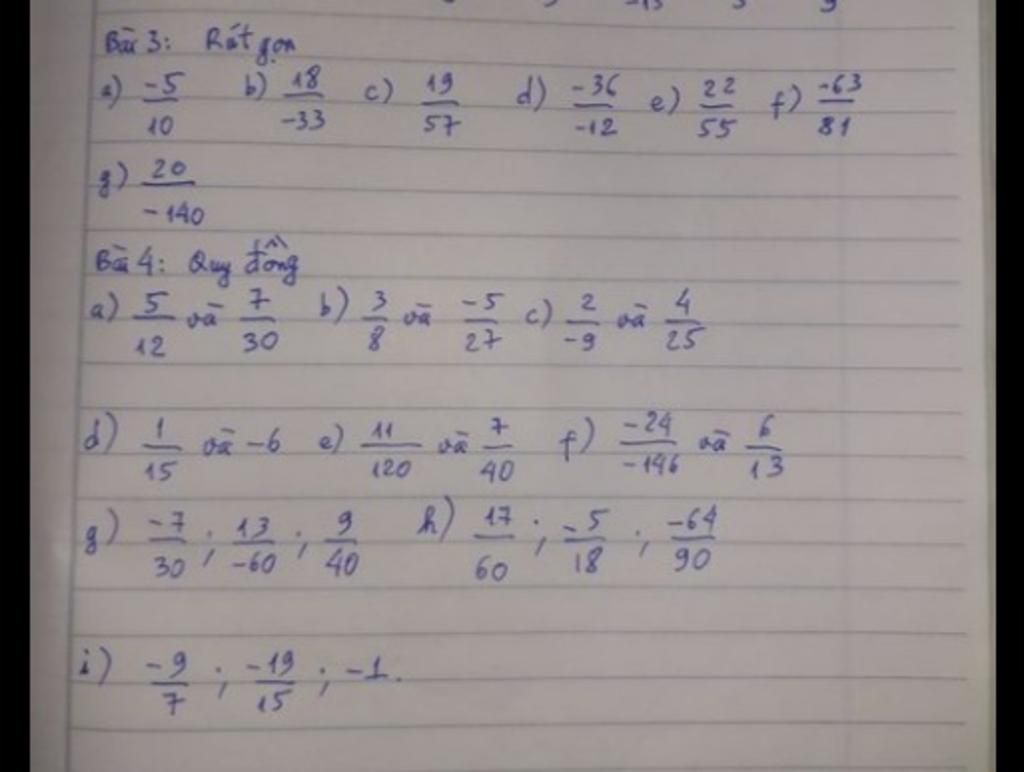 -15 3 9
Bài 3: Rút gọn
a) -5/10 b) 18/-33 c) 19/57 d) -36/-12 e) 22/55 f) -63/81
g) 20/-140
Bài 4: Quy đồng
a) 5/12 và 7/30 b) 3/8 và -5/27 c) 2/-9 và 4/25
d) 1/15 và -6 e) 11/120 và 7/40 f) -24/-146 và 6/13
g) -7/30 ; 13/-60 ; 9/40 h) 17/60 ; -5/18 ; -64/90
i) -9/7 ; -19/15 ; -1.